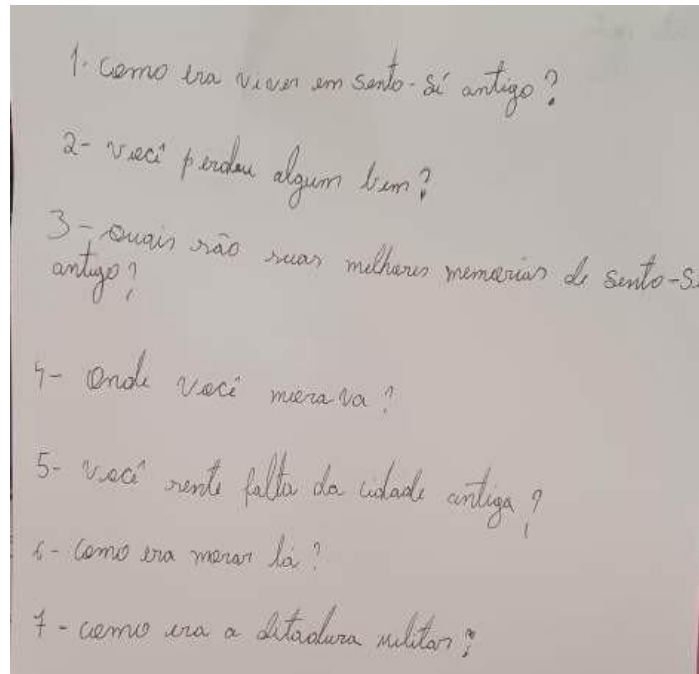 1. como era viver em sento-sé antigo?
2- você perdeu algum bem?
3- quais são suas melhores memorias de sento-s
antigo?
4- onde você morava?
5- você sente falta da cidade antiga?
6- como era morar lá?
7- como era a ditadura militar?